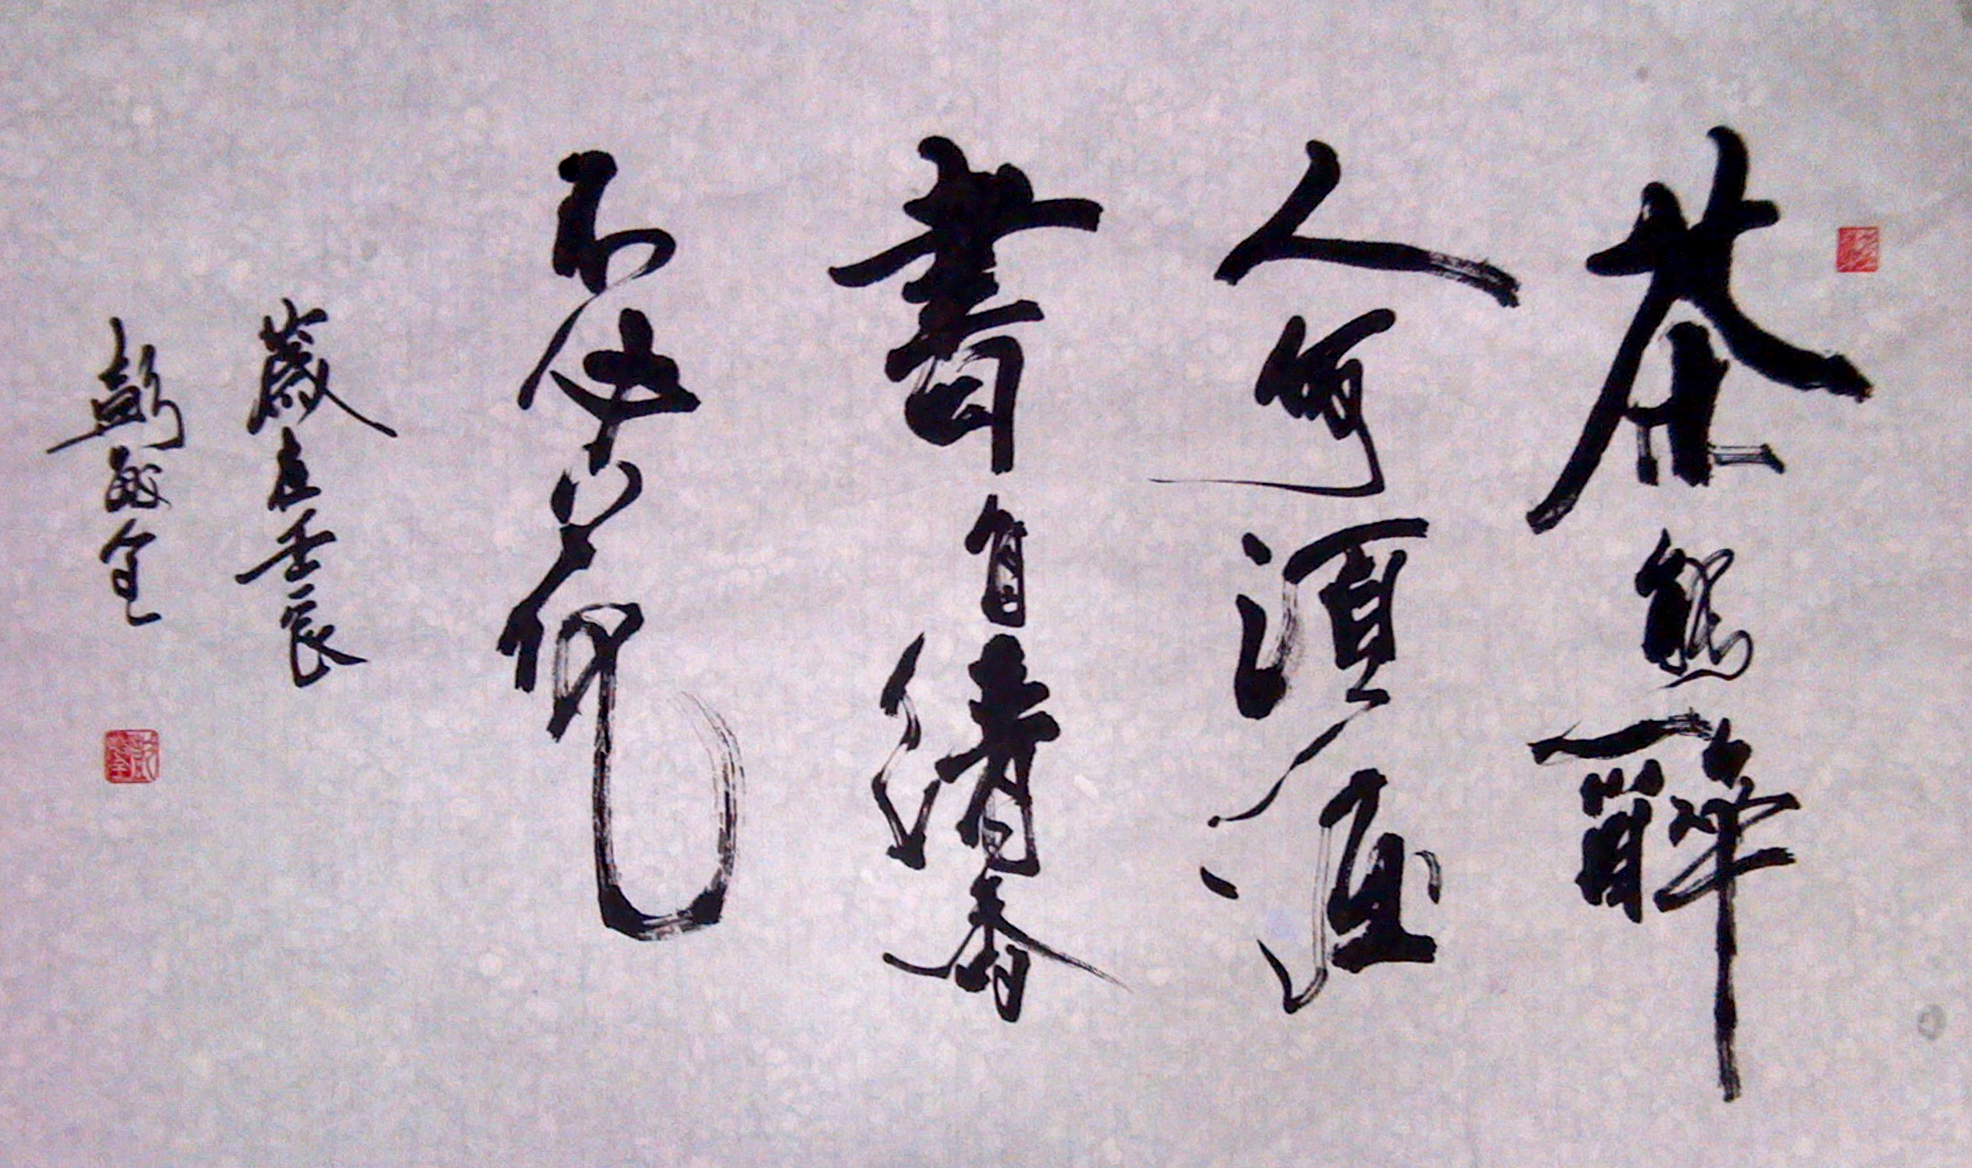 茶能醉
人何須酒
書自清香
不花
歲在壬辰
彭全